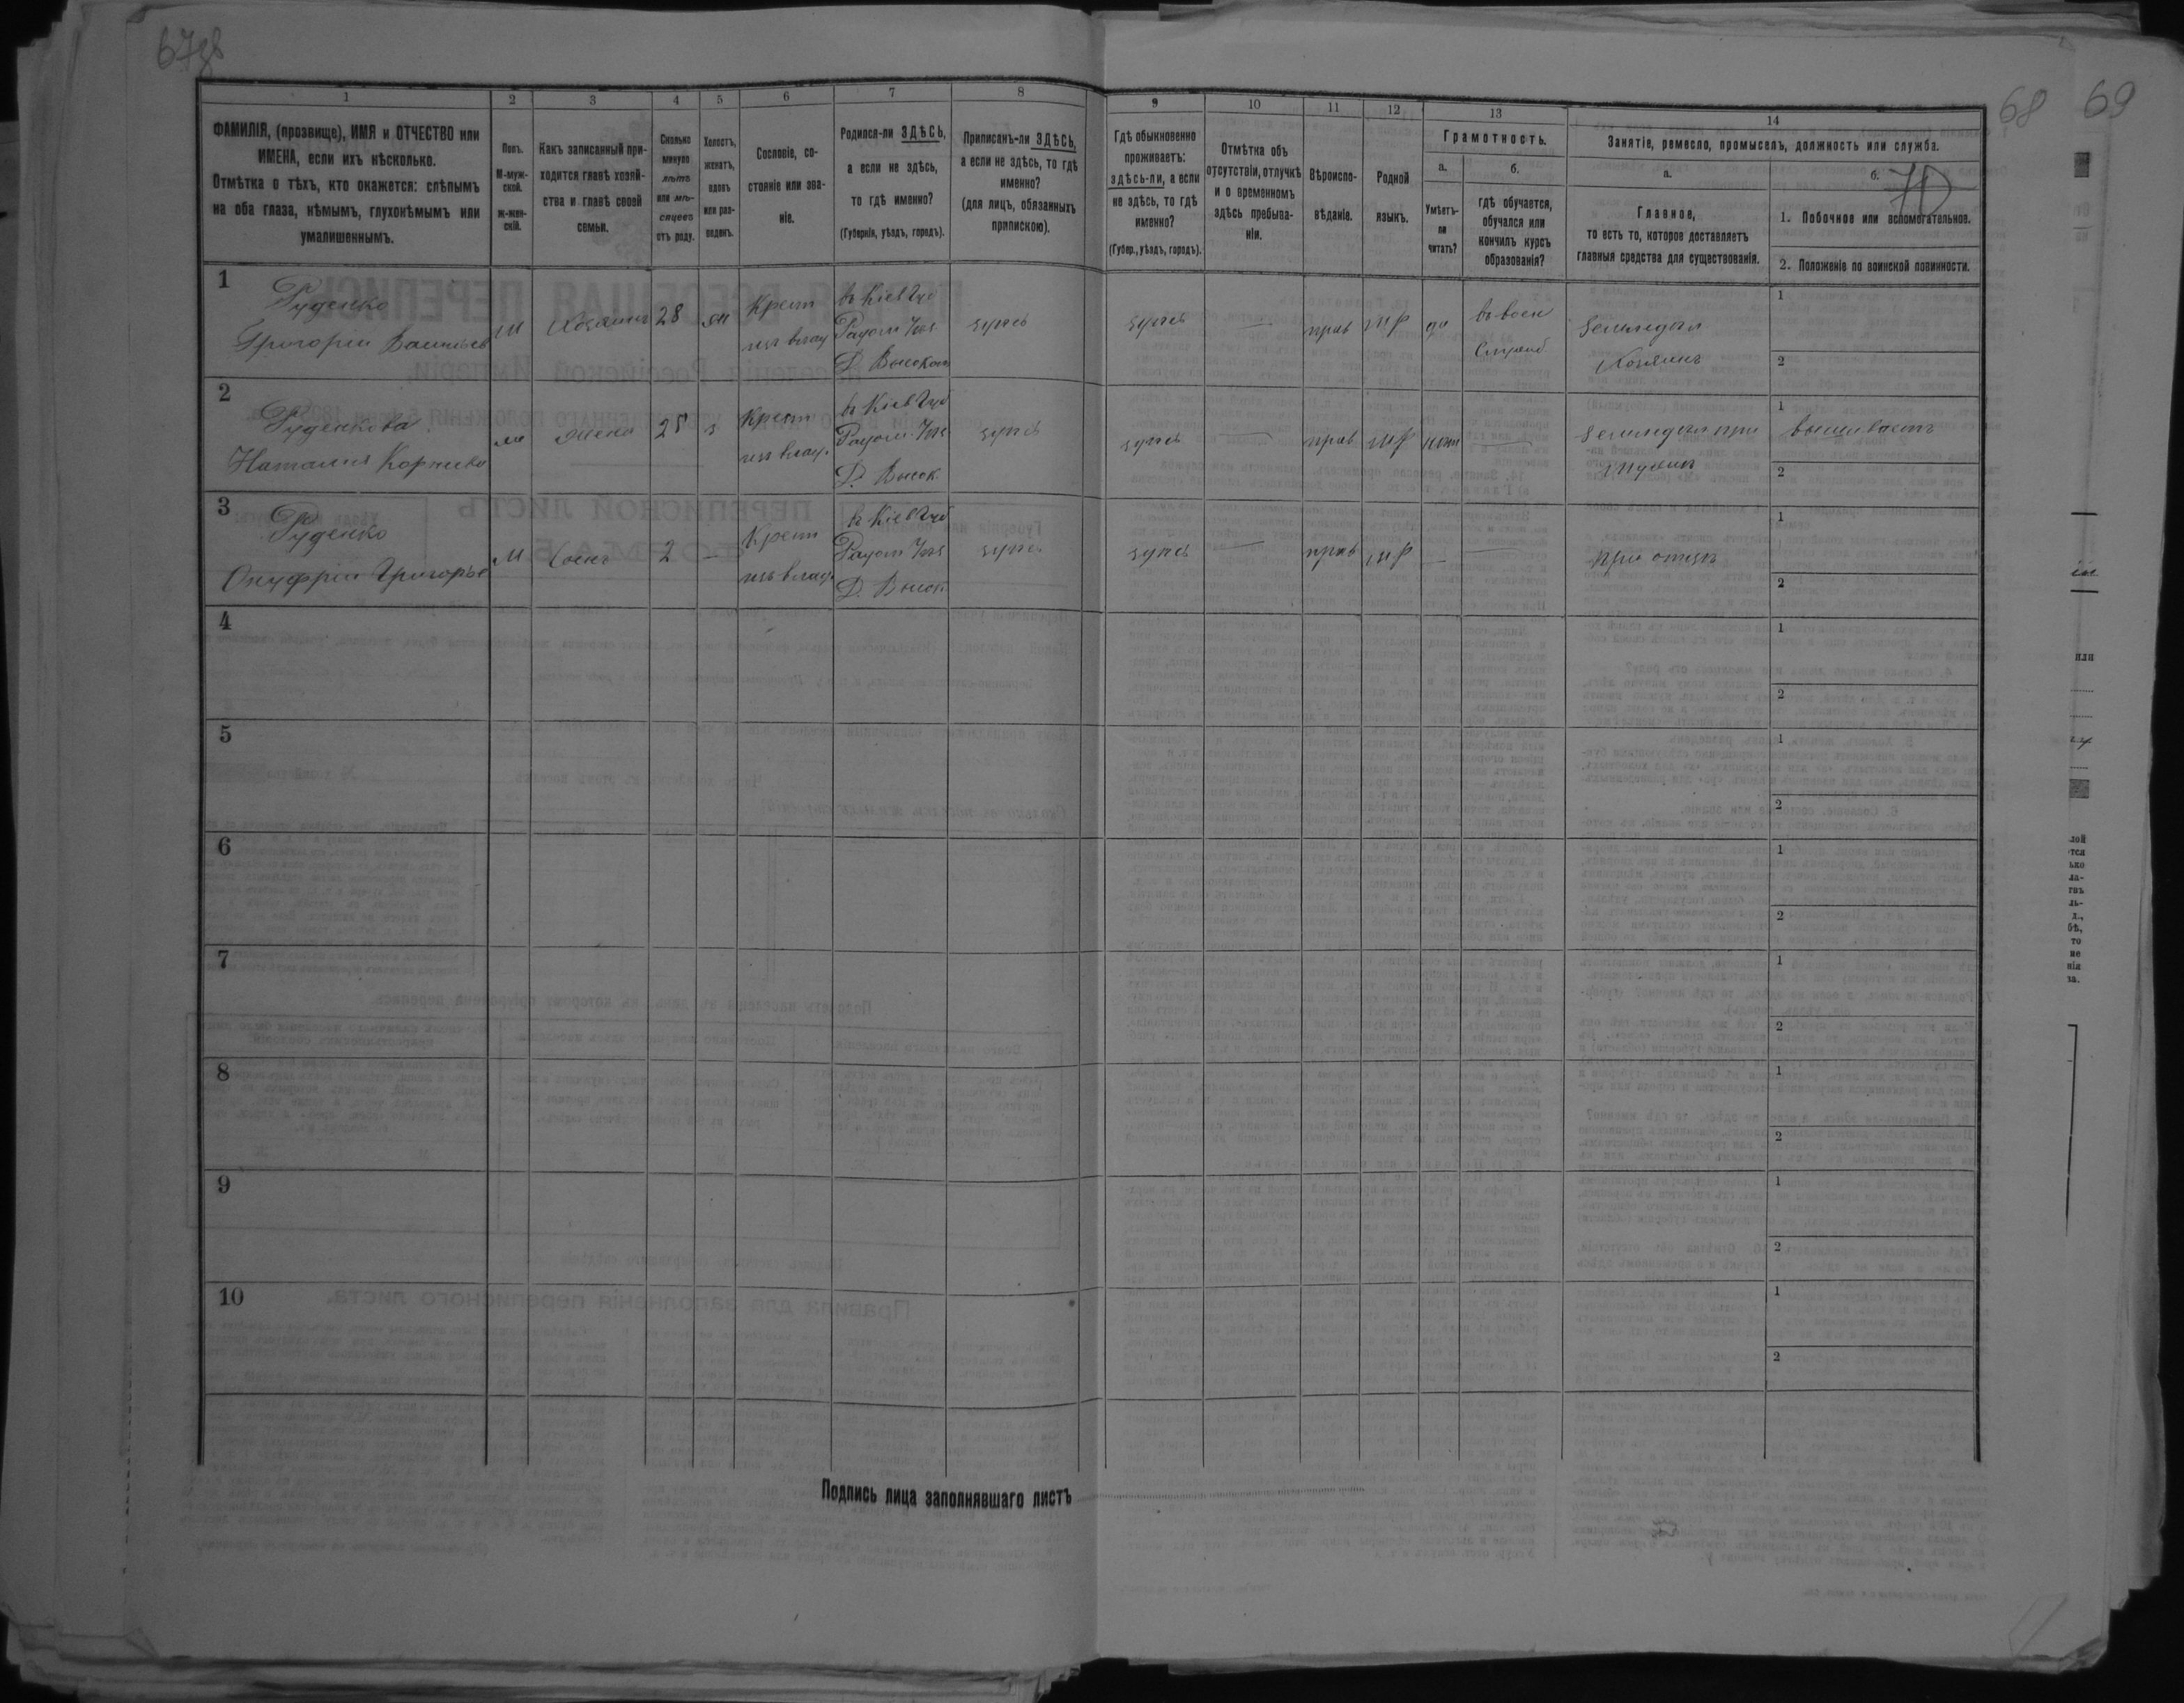 67об
68 69
70
1 2 3 4 5 6 7 8 9 10 11 12 13 14
ФАМИЛІЯ, (прозвище), ИМЯ и ОТЧЕСТВО или
ИМЕНА, если ихъ нѣсколько.
Отмѣтка о тѣхъ, кто окажется: слѣпымъ
на оба глаза, нѣмымъ, глухонѣмымъ или
умалишеннымъ.
Полъ.
М-муж-
ской.
ж-жен-
скій.
Какъ записанный при-
ходится главѣ хозяй-
ства и главѣ своей
семьи.
Сколько
минуло
лѣтъ
или мѣ-
сяцевъ
отъ роду.
Холостъ,
женатъ,
вдовъ
или раз-
веденъ.
Сословіе, со-
стояніе или зва-
ніе.
Родился-ли ЗДѢСЬ,
а если не здѣсь,
то гдѣ именно?
(Губернія, уѣздъ, городъ).
Приписанъ-ли ЗДѢСЬ,
а если не здѣсь, то гдѣ
именно?
(для лицъ, обязанныхъ
припискою).
Гдѣ обыкновенно
проживаетъ:
здѣсь-ли, а если
не здѣсь, то гдѣ
именно?
(Губер., уѣздъ, городъ).
Отмѣтка объ
отсутствіи, отлучкѣ
и о временномъ
здѣсь пребыва-
ніи.
Вѣроиспо-
вѣданіе.
Родной
языкъ.
Грамотность.
а.
Умѣетъ-
ли
читать?
б.
гдѣ обучается,
обучался или
кончилъ курсъ
образованія?
Занятіе, ремесло, промыселъ, должность или служба.
а.
Главное,
то есть то, которое доставляетъ
главныя средства для существованія.
б.
1. Побочное или вспомогательное.
2. Положеніе по воинской повинности.
1
Руденко
Григорій Васильев
м
Хозяинъ
28
ж
Крест
изъ влад
въ Кіев Губ
Радом Уѣз
Д. Высоком
здѣсь
здѣсь
—
прав
мр
да
въ воен
Служб
Земледѣл
Хозяинъ
1
2
2
Руденкова
Наталия Корнѣева
ж
Жена
25
з
Крест
изъ влад.
въ Кіев Губ
Радом. Уѣз
Д. Высок.
здѣсь
здѣсь
—
прав
мр
нѣт
—
Земледѣл при
мужѣ
1
2
3
Руденко
Онуфрій Григорье
м
Сынъ
2
—
Крест
изъ влад.
въ Кіев Губ
Радом Уѣз
Д. Высок
здѣсь
здѣсь
—
прав
мр
—
—
при отцѣ
1
2
4
1
2
5
1
2
6
1
2
7
1
2
8
1
2
9
1
2
10
1
2
Подпись лица заполнявшаго листъ